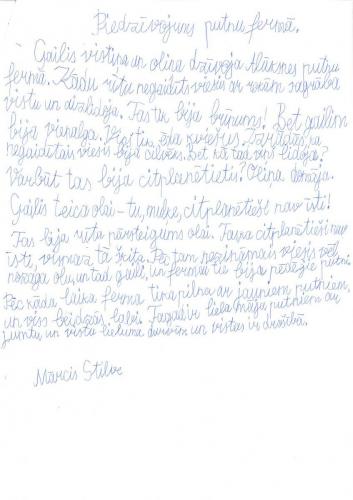 Piedzīvojums putnu fermā.
Gailis vistiņa un oliņa dzīvoja Alūksnes putnu
fermā. Kādu rītu negaidīts viesis ar rokām sagrāba
vistu un aizlidoja. Tas tur bija būrums! Bet gailim
bija vienalga. Viņš tur, ēda kviešus. Izrādās, ka
negaidītais viesis bija cilvēks. Bet kā tad viņš lidoja?
Varbūt tas bija citplanētietis? Oliņa domāja.
Gailis teica olai – tu, muļķe, citplanētieši nav īsti!
Tas bija rīta pārsteigums olai. Taisa citplanētieši nav
īsti, viņa tā šķita. Pēc tam nezināmais viesis vēl
nozaga olu, un tad gaili, un fermā te bija pēdējie putni.
Pēc kāda laika ferma bija pilna ar jauniem putniem,
un viss beidzās labi. Tagad ir liela māja putniem ar
jumtu, un vistu lieluma durvīm un vistas ir drošībā.
Mārcis Stilve